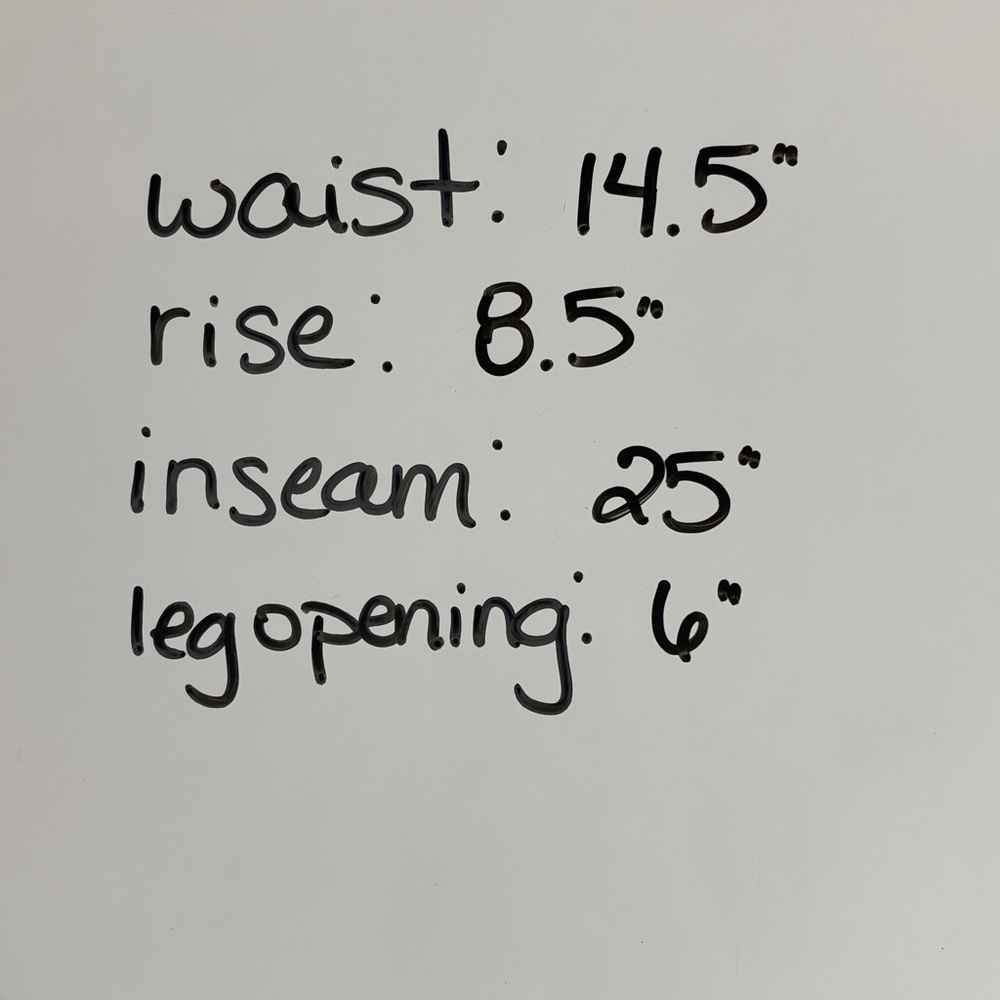 waist: 14.5"
rise: 8.5"
inseam: 25"
leg opening: 6"